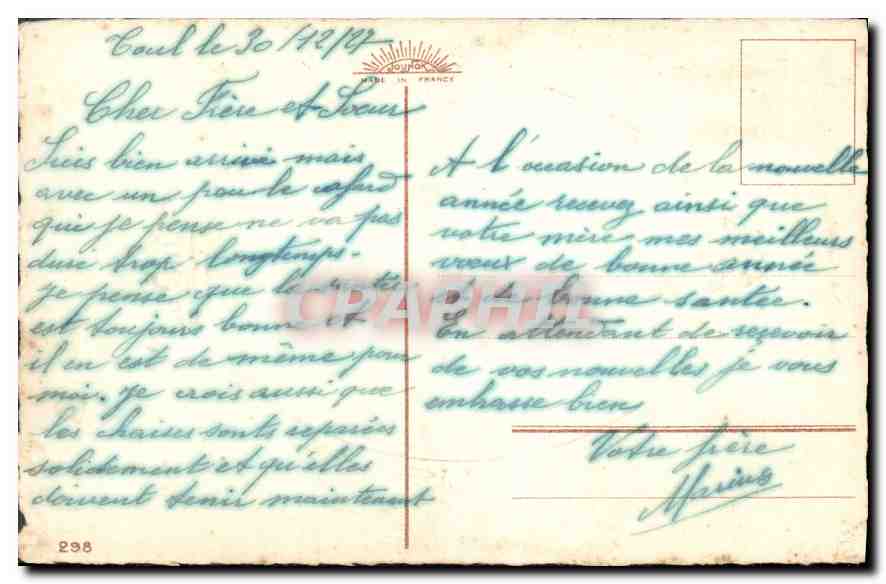 Toul le 30/12/27
Cher Frère et Soeur
Suis bien arrivé mais
avec un peu le cafard
qui je pense ne va pas
duré trop longtemps.
Je pense que la santé
est toujours bonne et
il en est de même pour
moi. Je crois aussi que
les chaises sonts reparées
solidement et qu'elles
doivent tenir maintenant
298
MADE IN FRANCE
A l'occasion de la nouvelle
année recevez ainsi que
votre mère mes meilleurs
voeux de bonne année
et de bonne santée.
En attendant de recevoir
de vos nouvelles je vous
embrasse bien
Votre frère
Marius
CPAPHIL